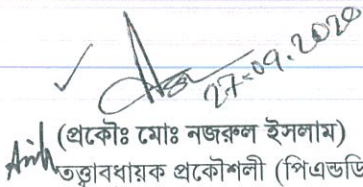 27.09.2020
(প্রকৌঃ মোঃ নজরুল ইসলাম)
তত্ত্বাবধায়ক প্রকৌশলী (পিএন্ডডি